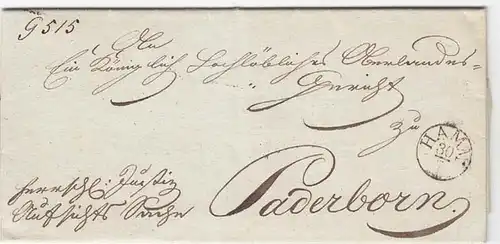 9515
An
Ein Königlich Hochlöbliches Oberlandes=
Gericht
zu
HAMM
30
Paderborn.
Herrschl: Justiz
Aufsichts Sache